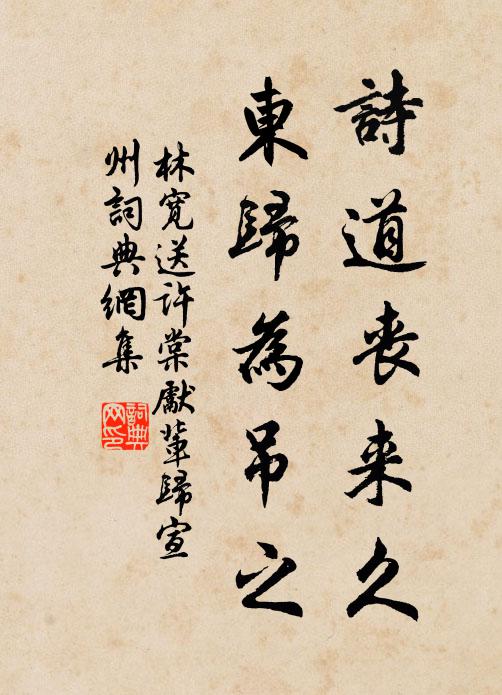 詩道喪来久
東歸為吊之
林寬送許棠獻輩歸宣
州詞典網集
詞典网印